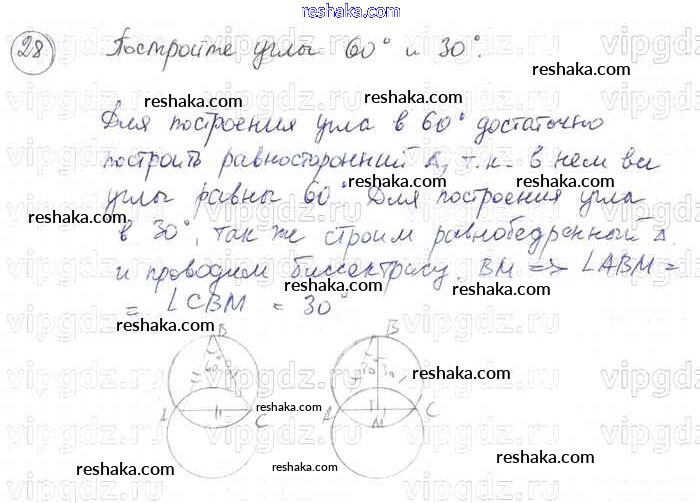 reshaka.com
28 Постройте углы 60° и 30°.
reshaka.com reshaka.com
Для построения угла в 60° достаточно
построить равносторонний Δ, т.к. в нем все
reshaka.com reshaka.com
углы равны 60°. Для построения угла
reshaka.com
в 30°, так же строим равнобедренный Δ.
и проводим биссектрису. BM => ∠ABM =
reshaka.com reshaka.com
= ∠CBM = 30°
reshaka.com
B B
60° 30° 30°
reshaka.com reshaka.com
A C A M C
reshaka.com reshaka.com
reshaka.com reshaka.com
vipgdz.ru